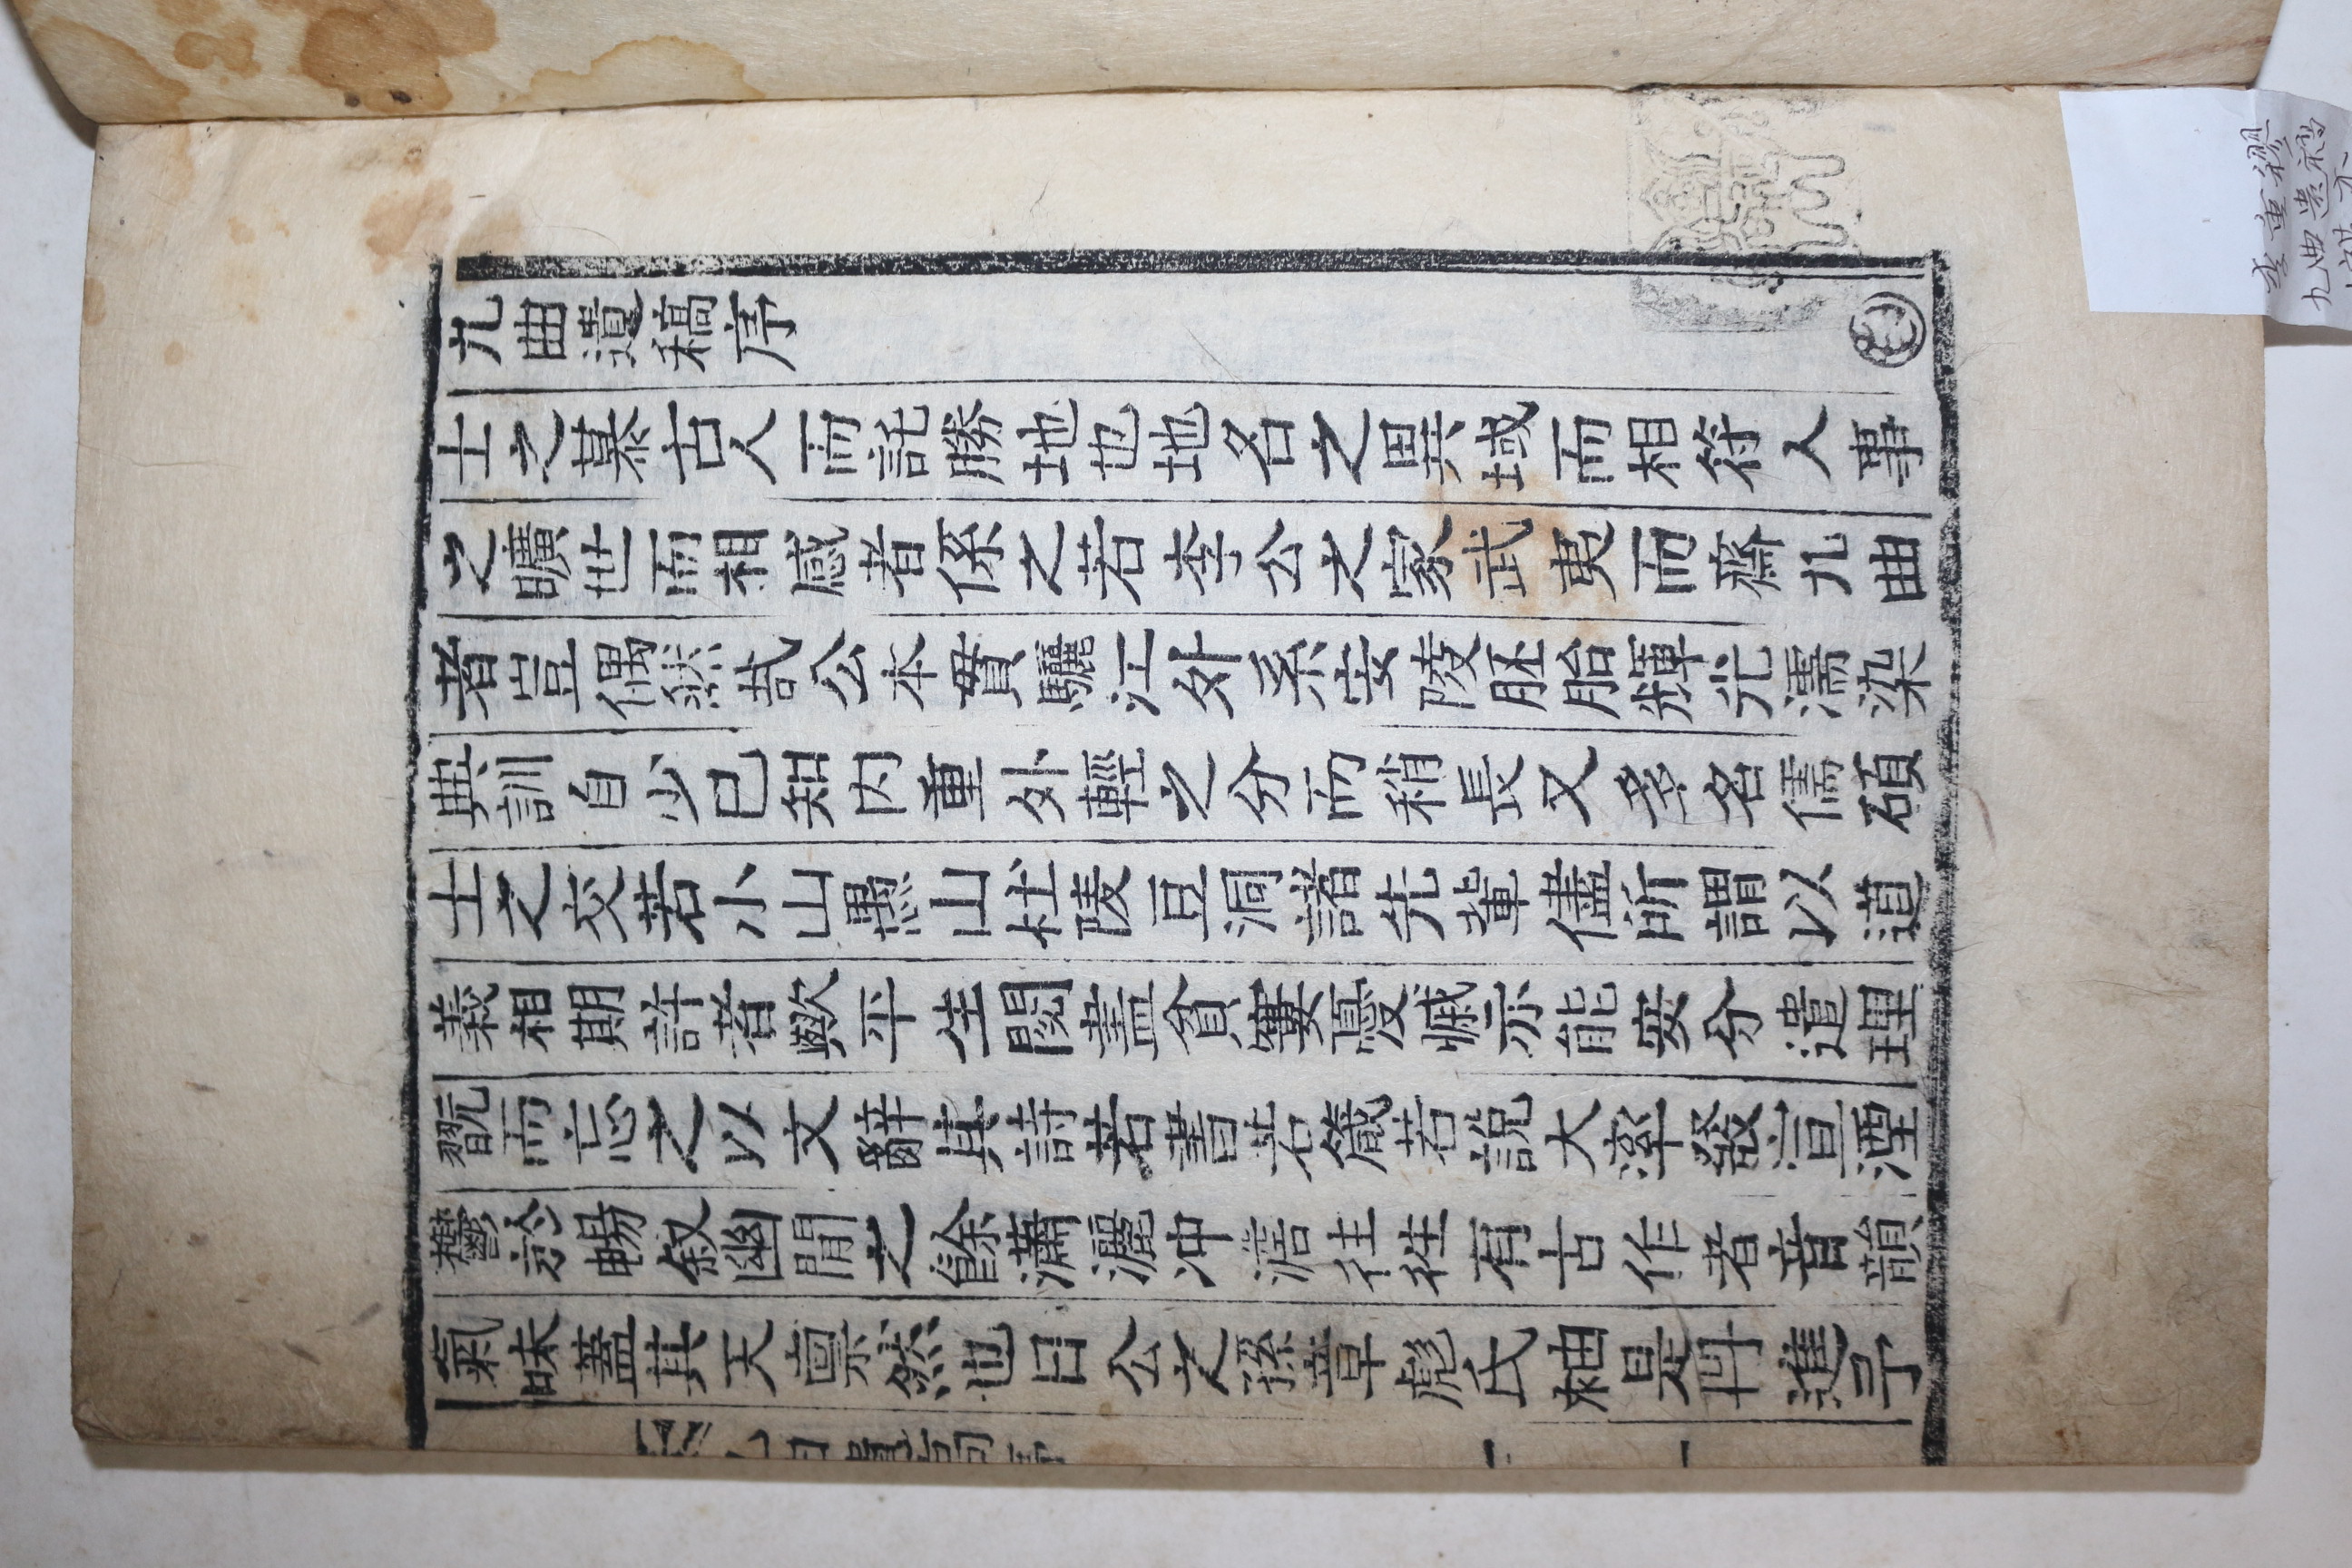 九曲遺稿序
士之慕古人而託勝地也地名之異域而相符人事
之曠世而相感者係之若李公之家武夷而齋九曲
者豈偶然哉公本貫驪江外系安陵胚胎輝光濡染
典訓自少已知内重外輕之分而稍長又多名儒碩
士之交若小山愚山杜陵豆洞諸先輩儘所謂以道
義相期許者歟平生閱盡貧窶憂慽亦能安分遣理
翫而忘之以文辭其詩若書若箴若說大率發宣湮
鬱於暢叙幽閒之餘瀟灑冲澹往往有古作者音韻
氣味蓋其天禀然也日公之孫章彪氏袖是丹進予
李重穆
九曲遺稿